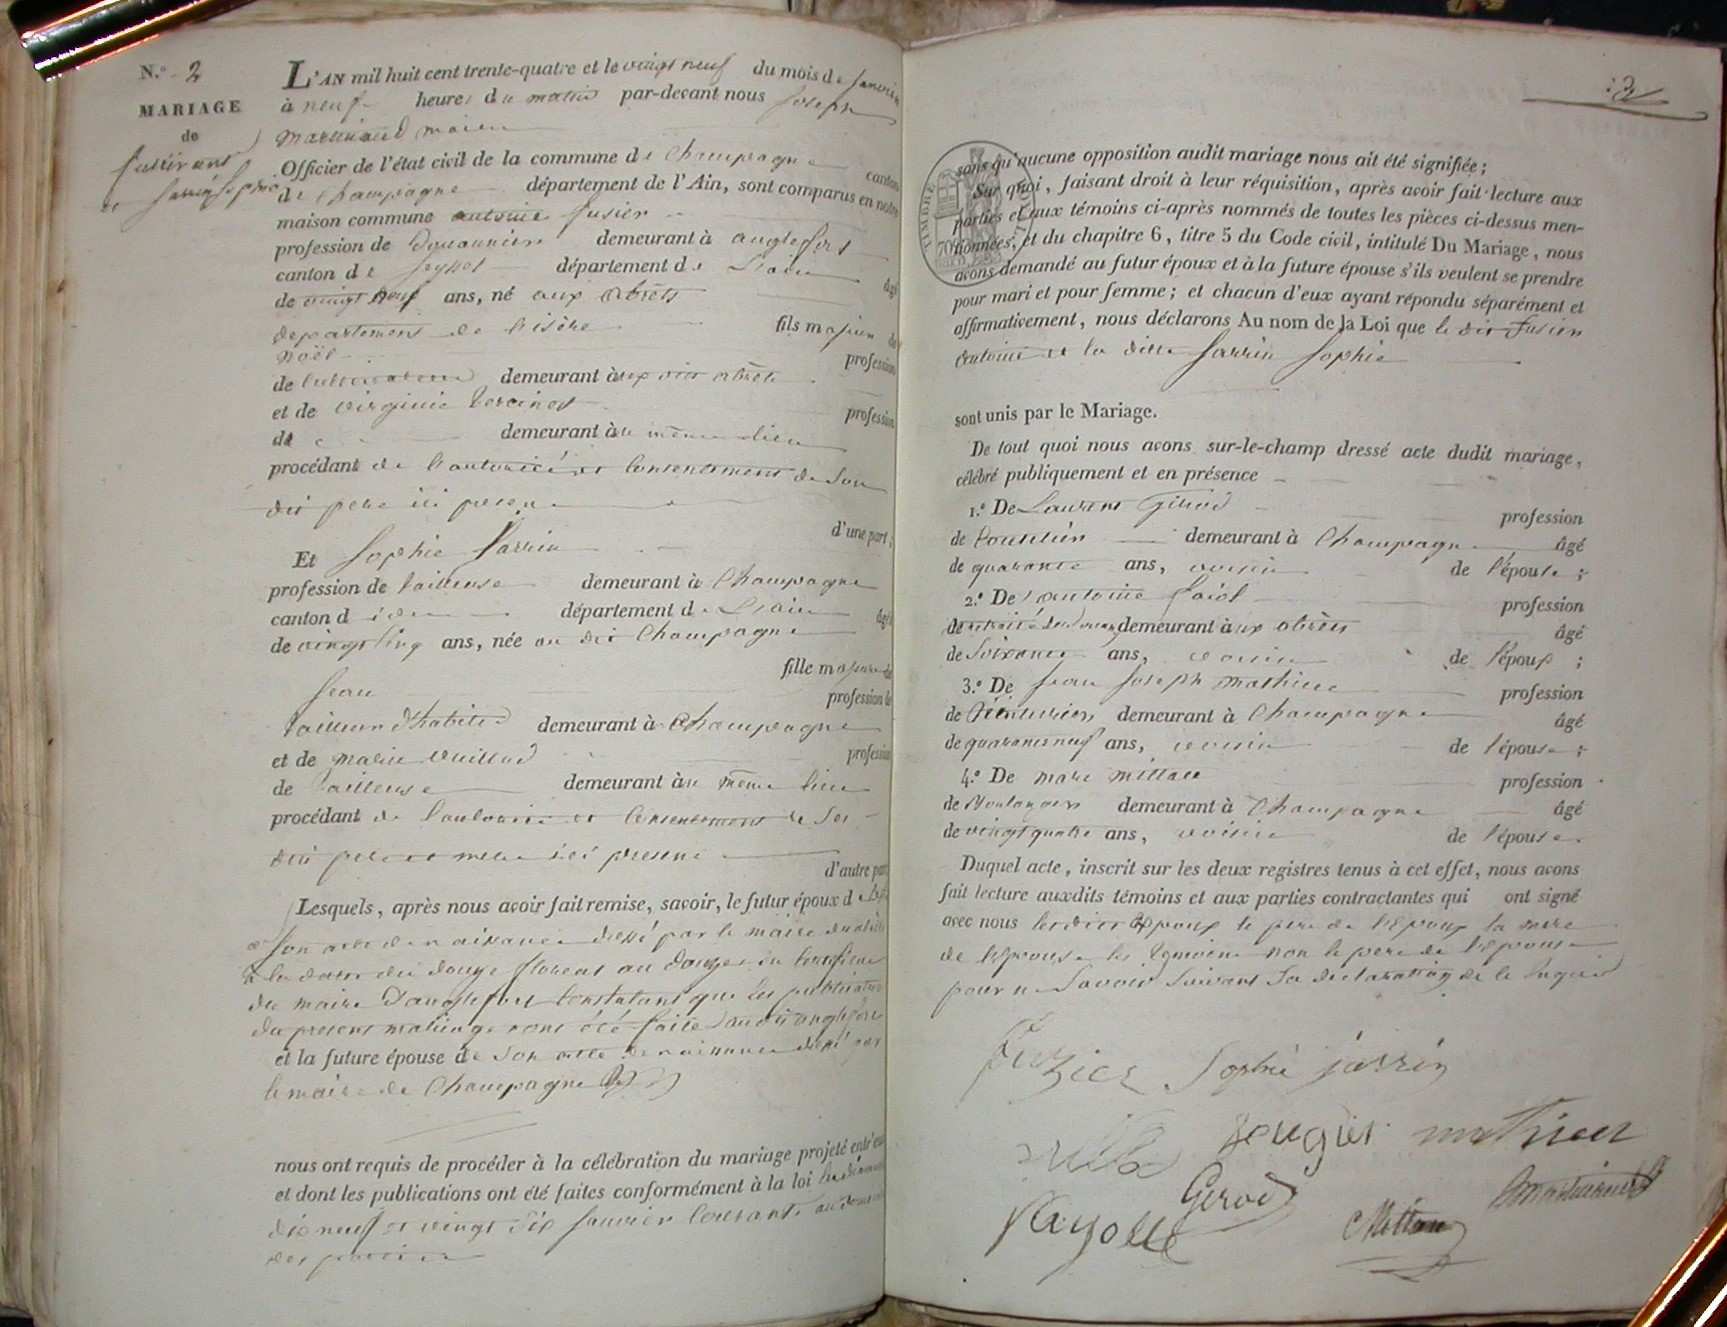 N.º 2
MARIAGE
de
L'AN mil huit cent trente-quatre et le vingt neuf du mois de janvier
à neuf heures du matin par-devant nous joseph
maire
Officier de l'état civil de la commune de Champagne canton
de Champagne département de l'Ain, sont comparus en notre
maison commune antoine fusier
profession de Douannier demeurant à anglefort
canton de Seyssel département de L'ain âgé
de vingt neuf ans, né aux abrets
departement de l'isère fils majeur de
noël profession
de Cultivateur demeurant à aux dits abrets
et de virginie profession
de demeurant à au même lieu
procédant de l'autorité et Consentement de Son
dit pere ici present
d'une part;
Et Sophie Jarrin
profession de tailleuse demeurant à Champagne
canton d idem département de L'ain âgé
de vingt cinq ans, née au dit Champagne
fille majeure de
jean profession de
tailleur d'habits demeurant à Champagne
et de marie vuillod profession
de tailleuse demeurant à au même lieu
procédant de l'autorité et Consentement de Ses
dits pere et mere ici present
d'autre part
Lesquels, après nous avoir fait remise, savoir, le futur époux de
Son acte de naissance délivré par le maire
à la date du douze floreal an douze du Certificat
du maire D'anglefort Constatant que les publications
du present mariage ont été faites audit anglefort
et la future épouse de Son acte de naissance delivré par
le maire de Champagne
nous ont requis de procéder à la célébration du mariage projeté entr'eux
et dont les publications ont été faites conformément à la loi les dimanches
dix neuf et vingt Six janvier Courant
2
TIMBRE
sans qu'aucune opposition audit mariage nous ait été signifiée;
Sur quoi, faisant droit à leur réquisition, après avoir fait lecture aux
parties et aux témoins ci-après nommés de toutes les pièces ci-dessus men-
tionnées, et du chapitre 6, titre 5 du Code civil, intitulé Du Mariage, nous
avons demandé au futur époux et à la future épouse s'ils veulent se prendre
pour mari et pour femme; et chacun d'eux ayant répondu séparément et
affirmativement, nous déclarons Au nom de la Loi que le dit fusier
antoine et la dite Jarrin Sophie
sont unis par le Mariage.
De tout quoi nous avons sur-le-champ dressé acte dudit mariage,
célébré publiquement et en présence
1.º De Laurent Girod profession
de demeurant à Champagne âgé
de quarante ans, voisin de l'épouse;
2.º De antoine profession
de demeurant à aux abrets âgé
de Soixante ans, voisin de l'époux;
3.º De jean joseph mathieu profession
de demeurant à Champagne âgé
de quarante neuf ans, voisin de l'épouse;
4.º De marc mittau profession
de Boulanger demeurant à Champagne âgé
de vingt quatre ans, voisin de l'épouse
Duquel acte, inscrit sur les deux registres tenus à cet effet, nous avons
fait lecture auxdits témoins et aux parties contractantes qui ont signé
avec nous les dits époux le pere de l'époux la mere
de l'épouse les temoins non le pere de l'épouse
pour ne Savoir Suivant Sa declaration de ce requis
fuzier Sophie jarrin
mathieu
Girod
Mittau